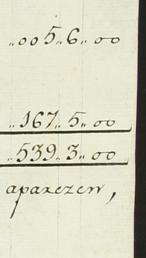 ,,005,,6,,00
,,167,,5,,00
,,539,,3,,00
aparezen,